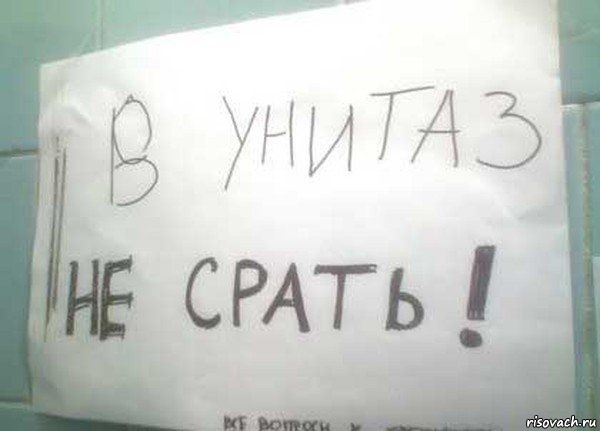 В УНИТАЗ
НЕ СРАТЬ!
ВСЕ ВОПРОСЫ К
risovach.ru